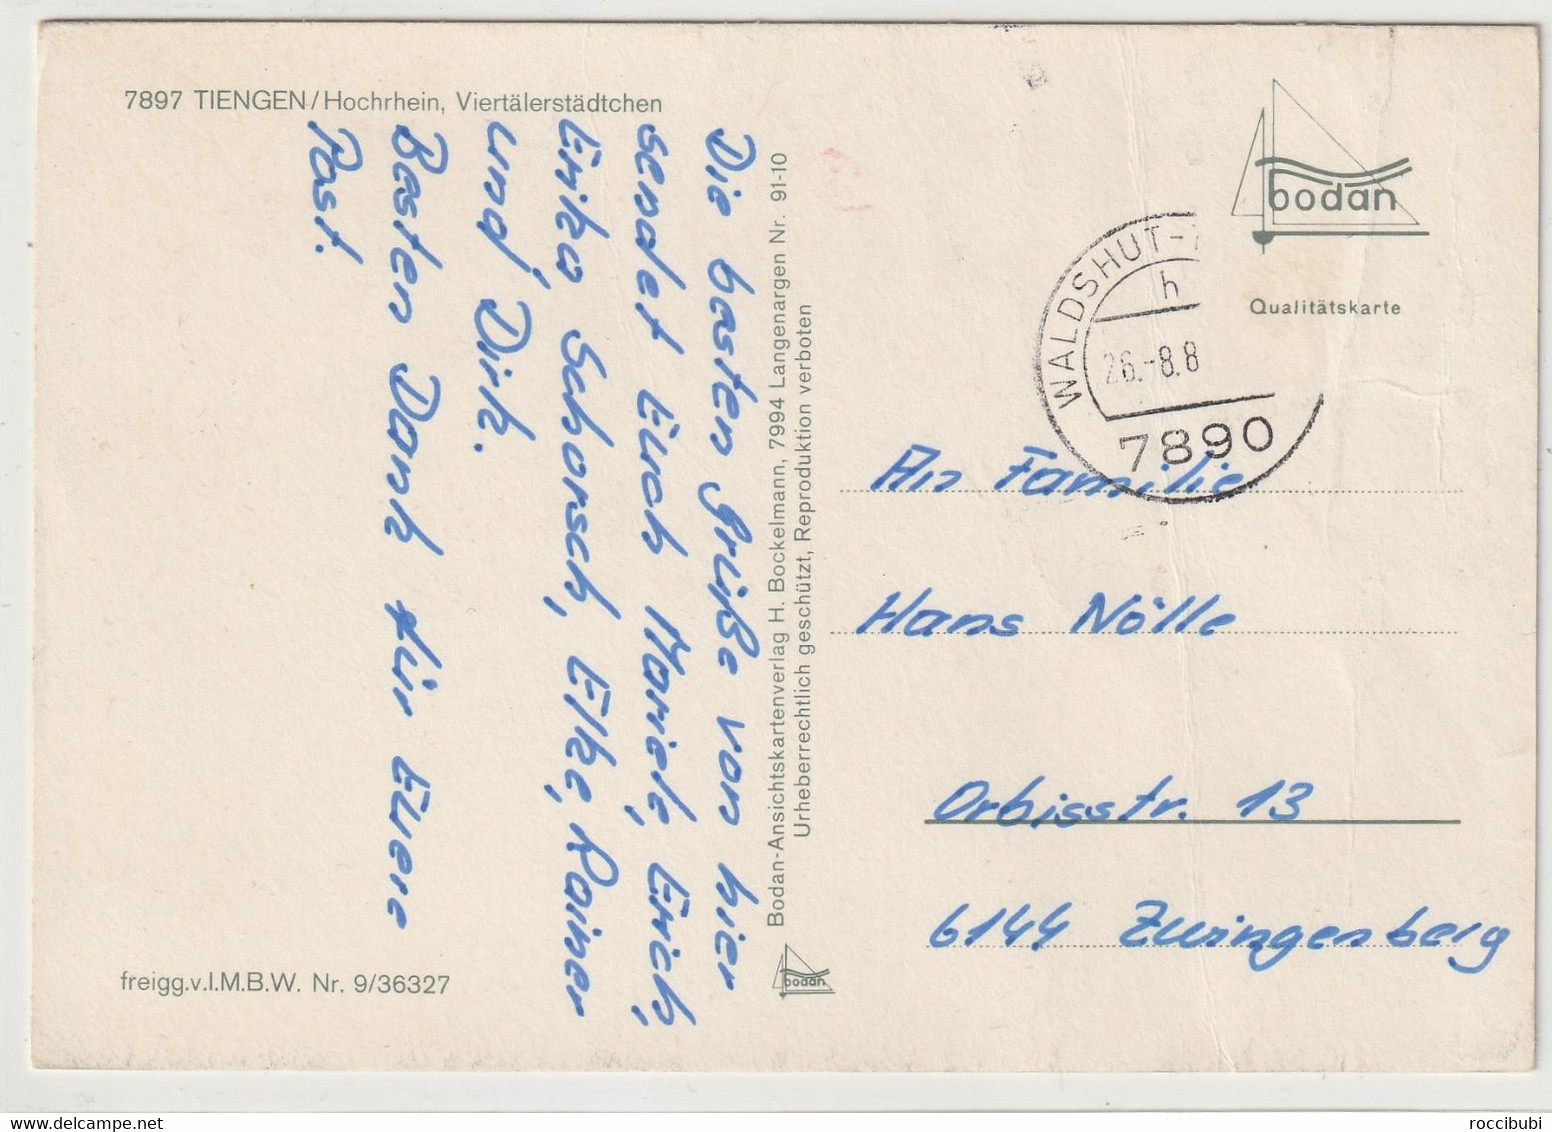 7897 TIENGEN/Hochrhein, Viertälerstädtchen
Die besten Grüße von hier
sendet Euch Mariele, Erich,
Erika, Schorsch, Elke, Rainer
und Dirk.
Besten Dank für Euere
Post.
freigg.v.I.M.B.W. Nr. 9/36327
Bodan-Ansichtskartenverlag H. Bockelmann, 7994 Langenargen Nr. 91-10
Urheberrechtlich geschützt, Reproduktion verboten
bodan
bodan
Qualitätskarte
WALDSHUT-
h
26.-8.8
7890
An Familie
Hans Nölle
Orbisstr. 13
6144 Zwingenberg
www.delcampe.net
roccibubi